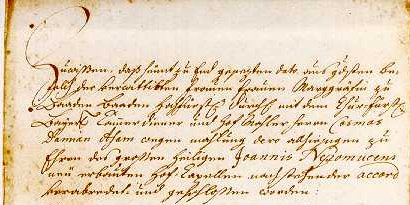 Zuwißen, daß heünt zu End gesezten dato aus gdsten be-
felch der verwittibten Frauen Frauen Marggräfin zu
Baaden Baaden hochfürstl: Durchl: mit dem Chur-Fürstl:
Bayerl: Cammerdiener und Hof Mahler Herrn Cosmas
Damian Asam wegen mahlung dero alhiesigen zu
Ehren des großen Heiligen Joannis Nepomucens
neü erbauten Hof Capellen nachstehender accord
verabredet und geschlossen worden: